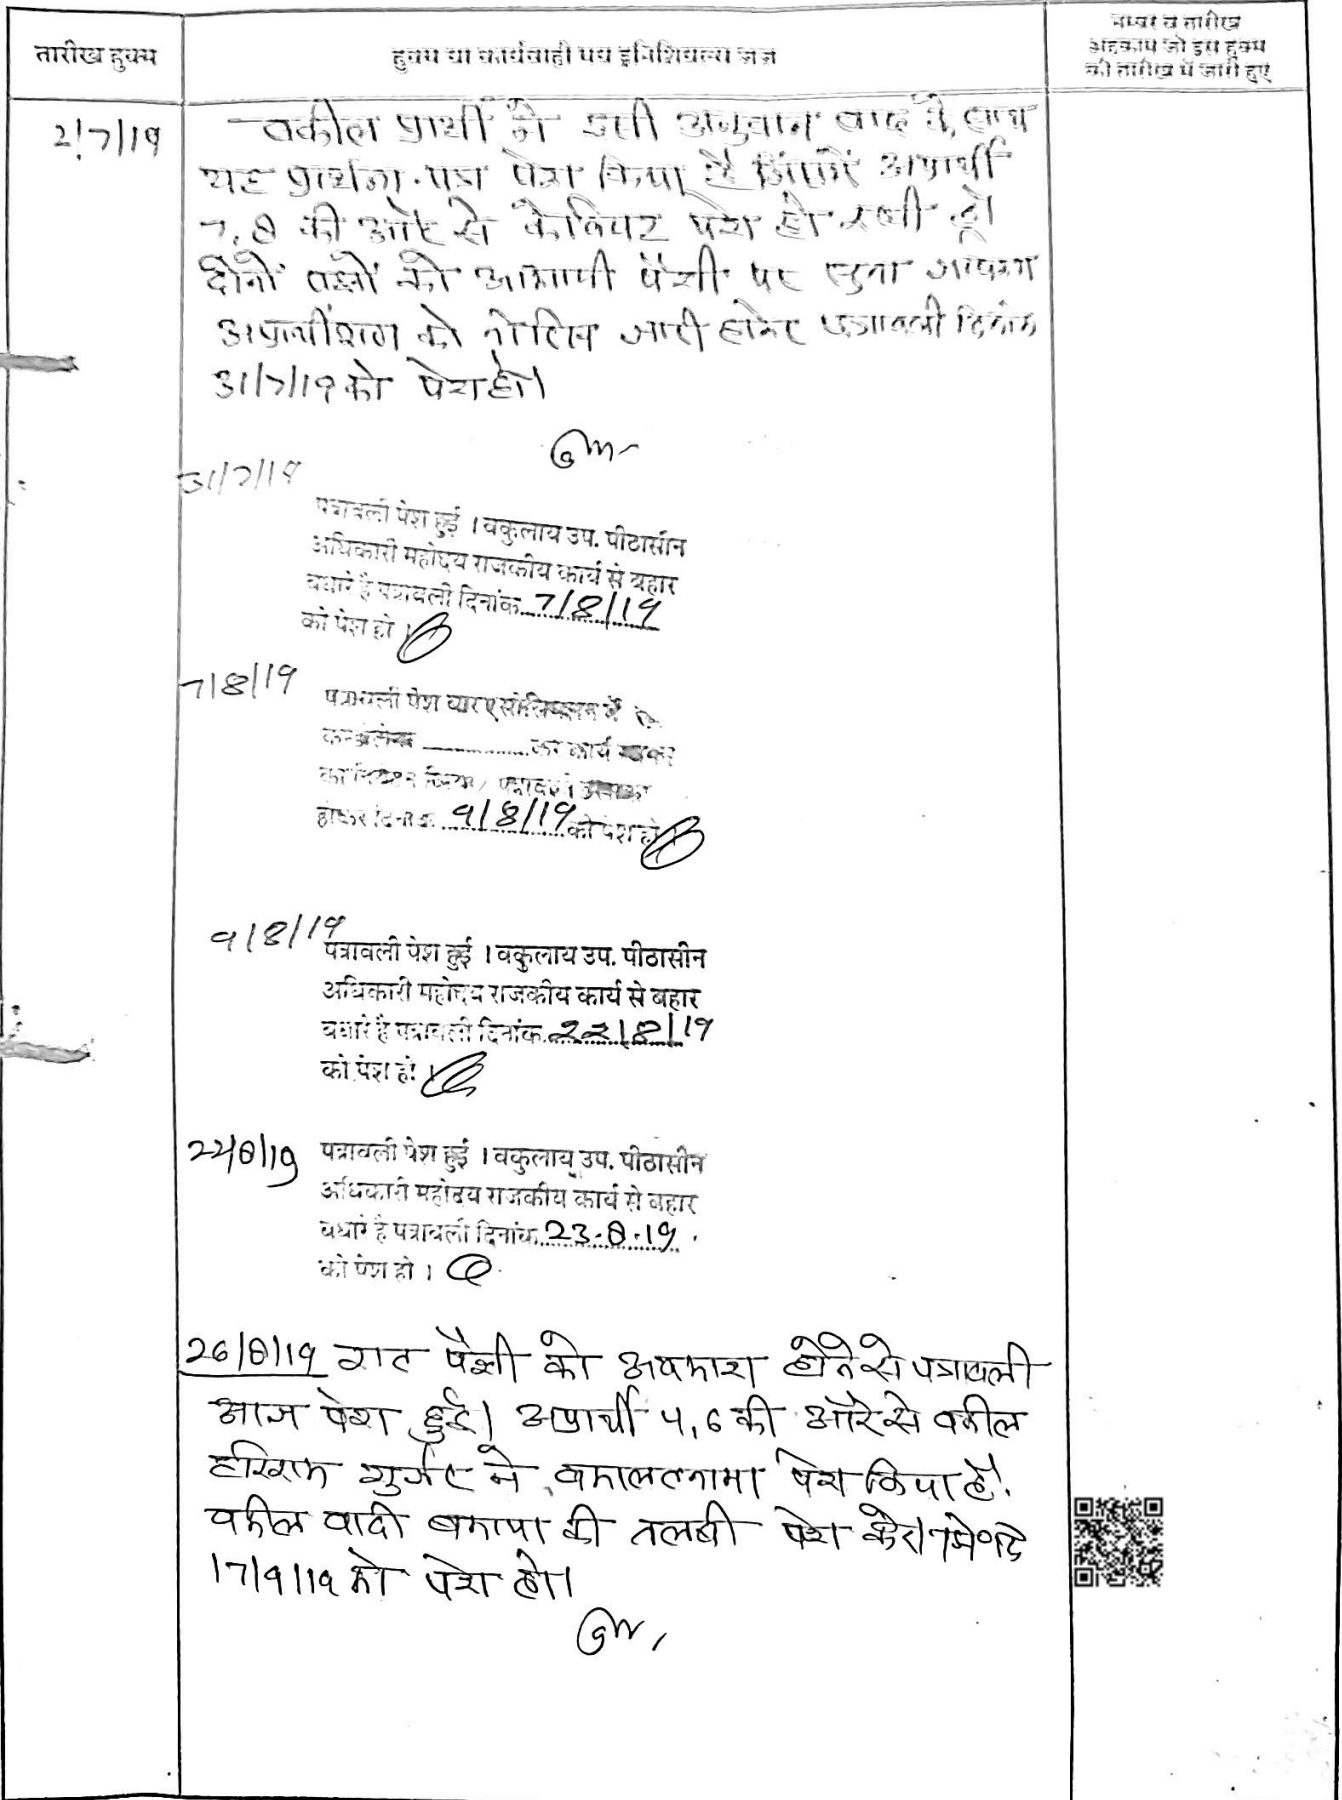 तारीख हुक्म
हुक्म या कार्यवाही मय इनिशियल्स जज
नम्बर व तारीख
अहकाम जो इस हुक्म
की तारीख में जारी हुए
2/7/19
वकील प्रार्थी ने इसी अनुवान वाद के साथ
यह प्रार्थना-पत्र पेश किया है जिसमें अप्रार्थी
7, 8 की ओर से केवियट पेश हो रखी है।
दोनों पक्षों को आगामी पेशी पर सुना जायेगा
अप्रार्थीगण को नोटिस जारी होकर पत्रावली दिनांक
31/7/19 को पेश हो।
31/7/19
पत्रावली पेश हुई । वकुलाय उप. पीठासीन
अधिकारी महोदय राजकीय कार्य से बहार
पधारे है पत्रावली दिनांक 7/8/19
को पेश हो ।
7/8/19
पत्रावली पेश बार
कार्य
पत्रावली
होकर दिनांक 9/8/19 को पेश हो
9/8/19
पत्रावली पेश हुई । वकुलाय उप. पीठासीन
अधिकारी महोदय राजकीय कार्य से बहार
पधारे है पत्रावली दिनांक 22/8/19
को पेश हो ।
22/8/19
पत्रावली पेश हुई । वकुलाय उप. पीठासीन
अधिकारी महोदय राजकीय कार्य से बहार
पधारे है पत्रावली दिनांक 23.8.19
को पेश हो ।
26/8/19 गत पेशी को अवकाश होने से पत्रावली
आज पेश हुई। अप्रार्थी 4, 6 की ओर से वकील
हरिराम गुर्जर ने वकालतनामा पेश किया है।
वकील वादी बकाया की तलबी पेश करे।
17/9/19 को पेश हो।